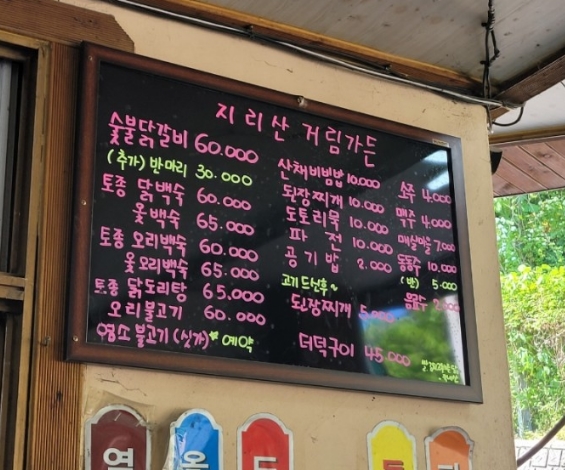 지리산 거림가든
숯불닭갈비 60.000
(추가) 반마리 30.000
토종 닭백숙 60.000
옻백숙 65.000
토종 오리백숙 60.000
옻오리백숙 65.000
토종 닭도리탕 65.000
오리불고기 60.000
염소 불고기 (싯가) 예약
산채비빔밥 10.000
된장찌개 10.000
도토리묵 10.000
파전 10.000
공기밥 2.000
고기드신후
된장찌개 5.000
더덕구이 45.000
소주 4.000
맥주 4.000
매실마을 7.000
동동주 10.000
(반) 5.000
음료수 2.000